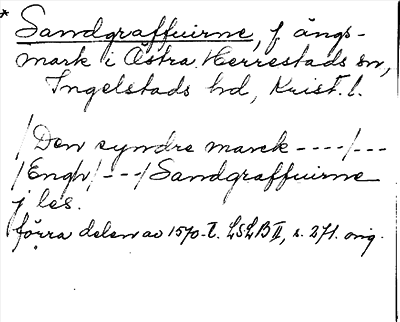 * Sandgraffuirne, f ängs-
mark i Östra Herrestads sn,
Ingelstads hd, Krist. l.
/Den syndre marck ----/---
/Engh/---/Sandgraffuirne
j les.
förra delen av 1570-t. LSLB II, s. 271. orig.